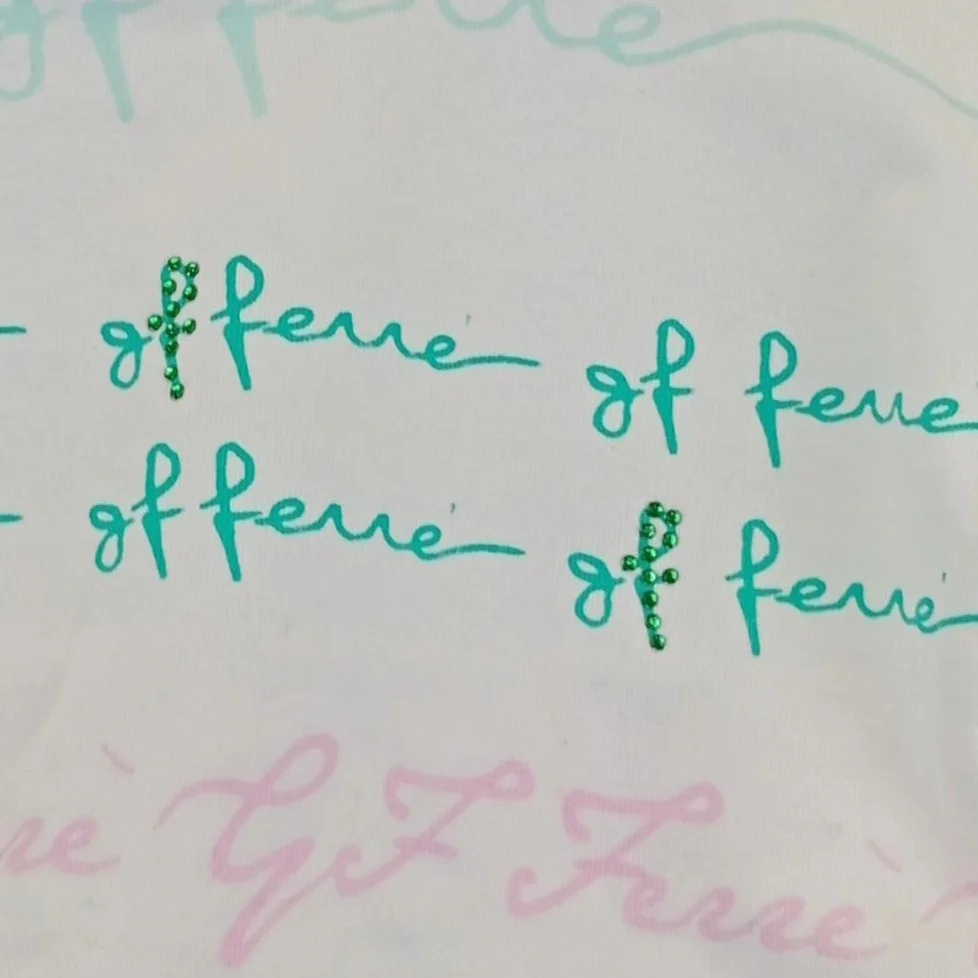 gf ferre
gf ferré
gf ferre
gf ferré
gf ferré
rè GF Ferrè